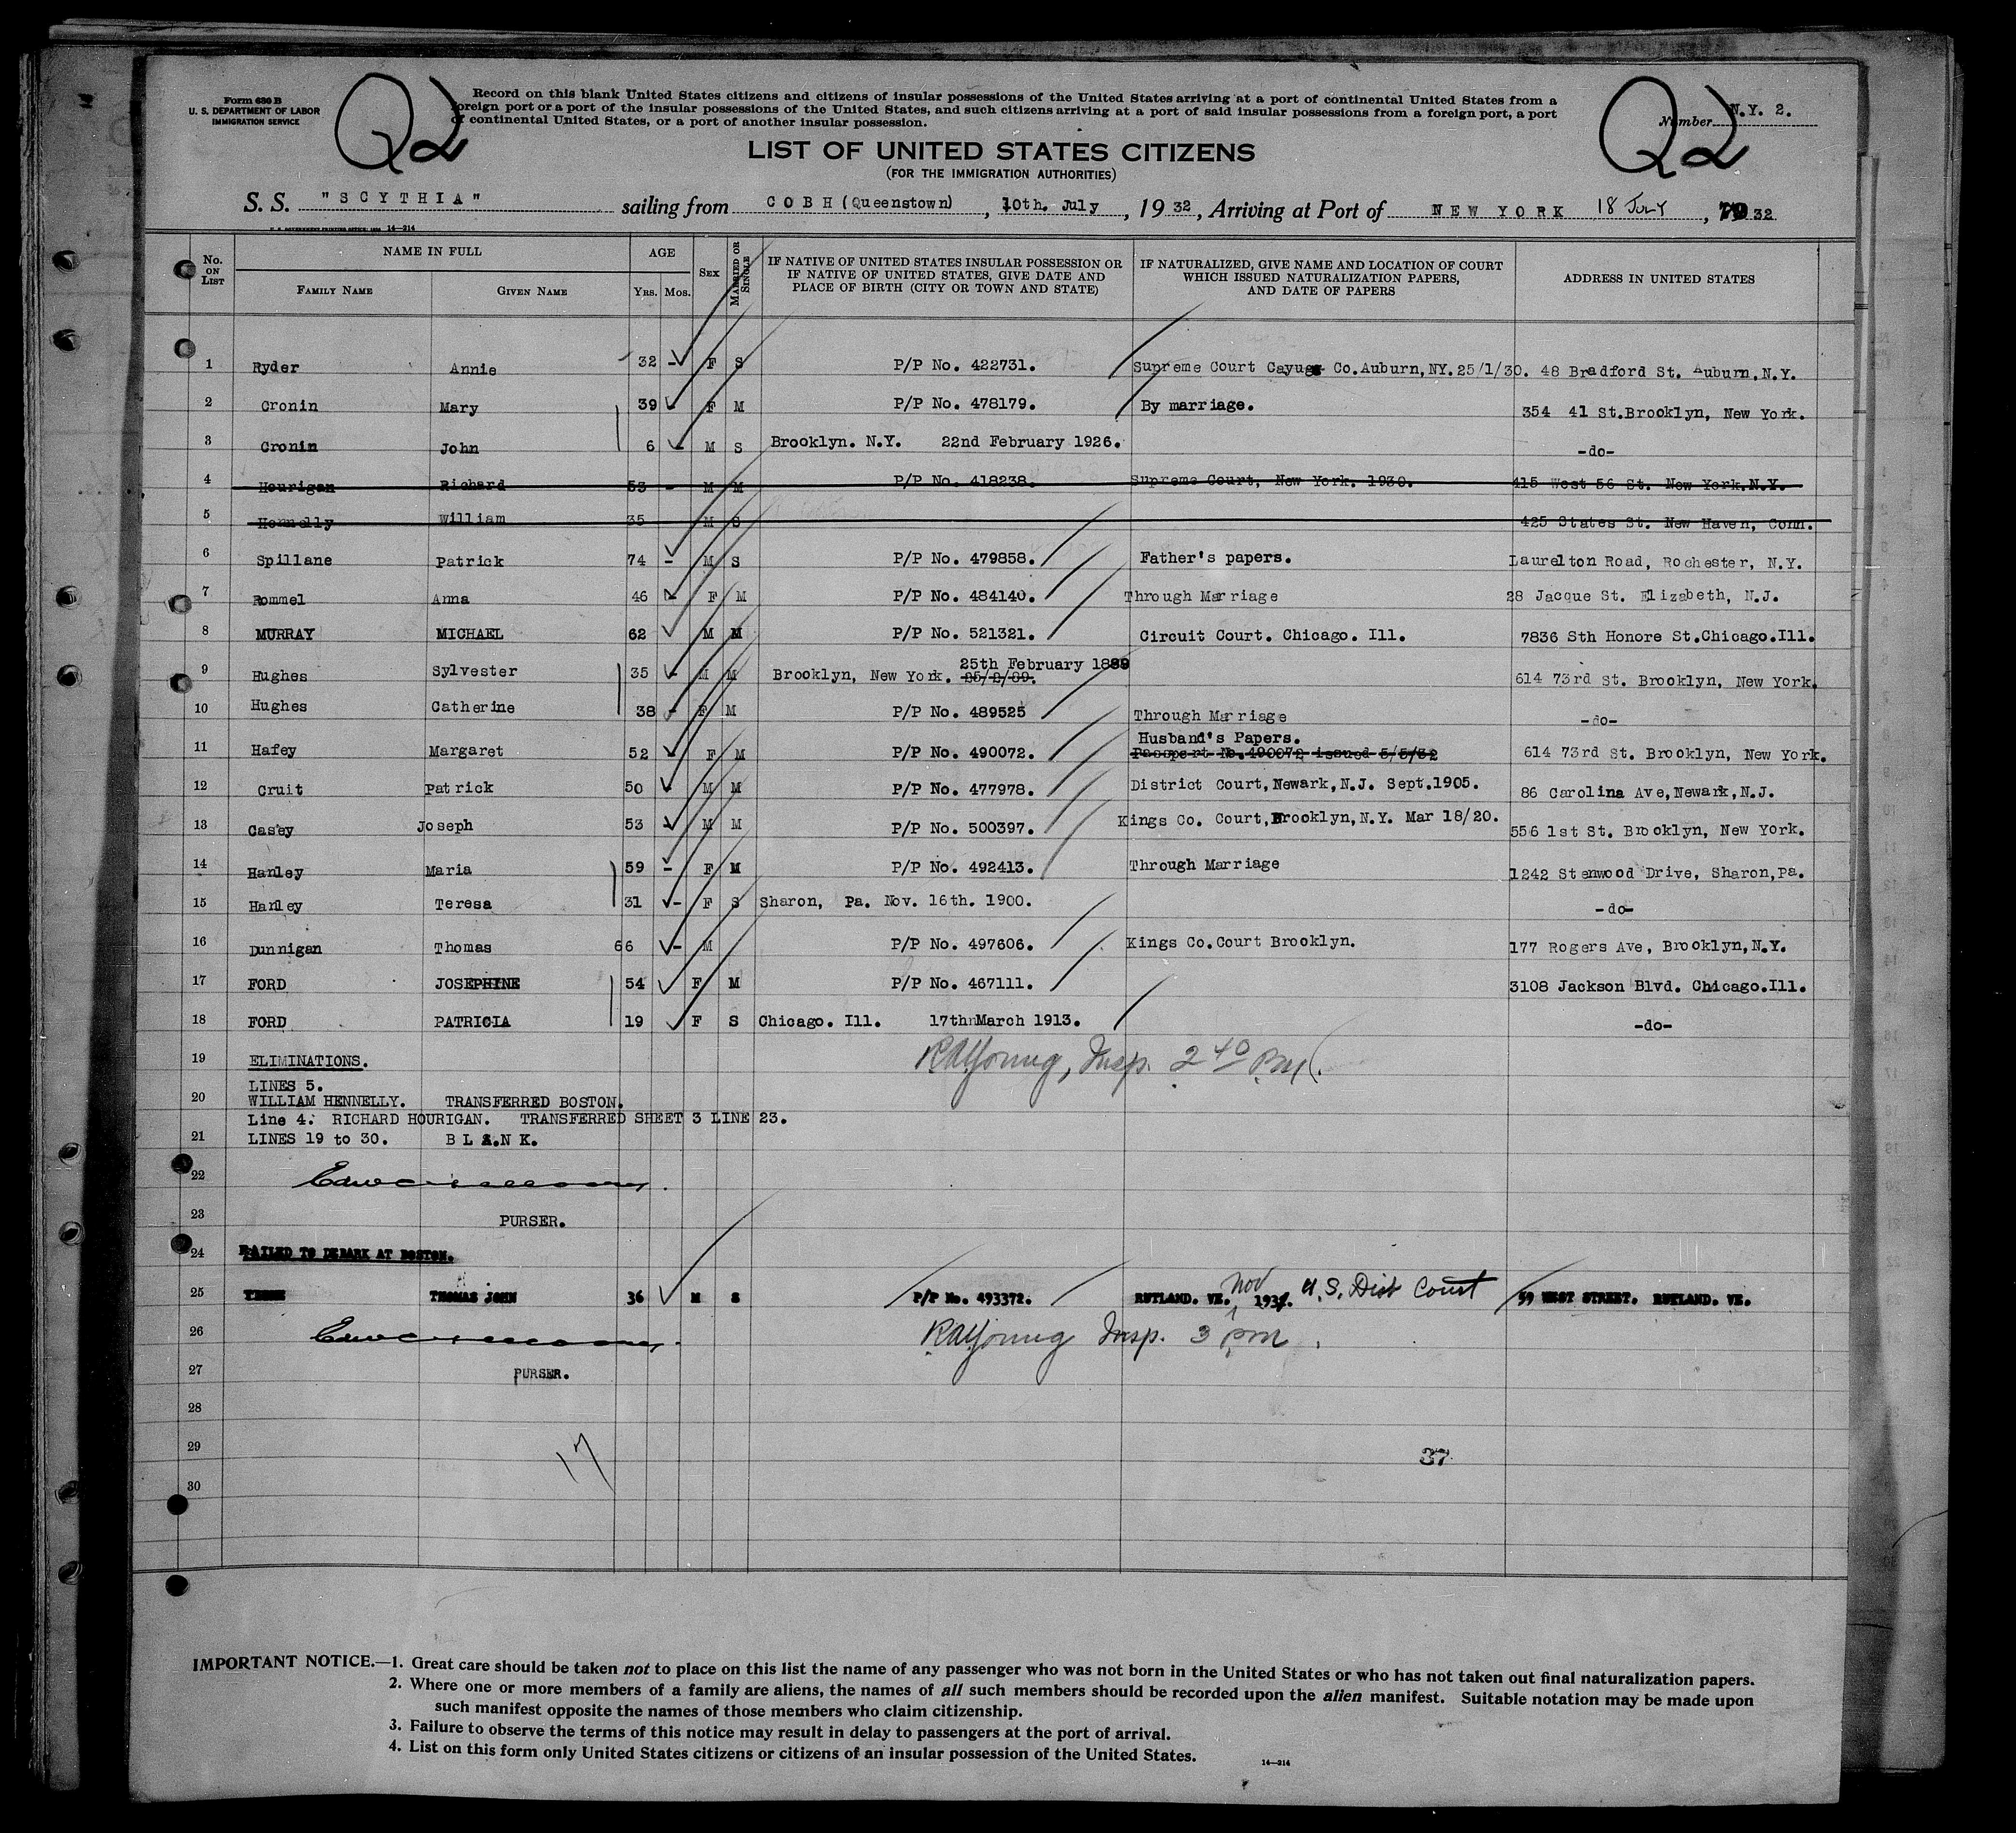 Form 630 B
U. S. DEPARTMENT OF LABOR
IMMIGRATION SERVICE
Q2
Record on this blank United States citizens and citizens of insular possessions of the United States arriving at a port of continental United States from a
foreign port or a port of the insular possessions of the United States, and such citizens arriving at a port of said insular possessions from a foreign port, a port
of continental United States, or a port of another insular possession.
Q2
Number N.Y. 2.
LIST OF UNITED STATES CITIZENS
(FOR THE IMMIGRATION AUTHORITIES)
S. S. "SCYTHIA" sailing from COBH (Queenstown), 10th. July, 1932, Arriving at Port of NEW YORK 18 July, 1932
14—214
No. ON LIST NAME IN FULL AGE SEX MARRIED OR SINGLE IF NATIVE OF UNITED STATES INSULAR POSSESSION OR IF NATIVE OF UNITED STATES, GIVE DATE AND PLACE OF BIRTH (CITY OR TOWN AND STATE) IF NATURALIZED, GIVE NAME AND LOCATION OF COURT WHICH ISSUED NATURALIZATION PAPERS, AND DATE OF PAPERS ADDRESS IN UNITED STATES
FAMILY NAME GIVEN NAME YRS. MOS.
1 Ryder Annie 32 - F S P/P No. 422731. Supreme Court Cayuga Co.Auburn,NY.25/1/30. 48 Bradford St. Auburn,N.Y.
2 Cronin Mary 39 - F M P/P No. 478179. By marriage. 354 41 St.Brooklyn, New York.
3 Cronin John 6 - M S Brooklyn. N.Y. 22nd February 1926. -do-
4 Hourigan Richard 53 - M M P/P No. 418238. Supreme Court, New York. 1930. 415 West 56 St. New York.N.Y.
5 Hennelly William 35 M S 425 States St. New Haven, Conn.
6 Spillane Patrick 74 - M S P/P No. 479858. Father's papers. Laurelton Road, Rochester, N.Y.
7 Rommel Anna 46 - F M P/P No. 484140. Through Marriage 28 Jacque St. Elizabeth, N.J.
8 MURRAY MICHAEL 62 M M P/P No. 521321. Circuit Court. Chicago. Ill. 7836 Sth Honore St.Chicago.Ill.
9 Hughes Sylvester 35 - M M Brooklyn, New York. 25th February 1889 25/2/89. 614 73rd St. Brooklyn, New York.
10 Hughes Catherine 38 - F M P/P No. 489525 Through Marriage -do-
11 Hafey Margaret 52 - F M P/P No. 490072. Husband's Papers. Passport No.490072 issued 5/5/32 614 73rd St. Brooklyn, New York.
12 Cruit Patrick 50 M M P/P No. 477978. District Court,Newark,N.J. Sept.1905. 86 Carolina Ave,Newark,N.J.
13 Casey Joseph 53 - M M P/P No. 500397. Kings Co. Court,Brooklyn,N.Y. Mar 18/20. 556 1st St. Brooklyn, New York.
14 Hanley Maria 59 - F M P/P No. 492413. Through Marriage 1242 Stenwood Drive, Sharon,Pa.
15 Hanley Teresa 31 - F S Sharon, Pa. Nov. 16th. 1900. -do-
16 Dunnigan Thomas 66 - M P/P No. 497606. Kings Co.Court Brooklyn. 177 Rogers Ave, Brooklyn,N.Y.
17 FORD JOSEPHINE 54 F M P/P No. 467111. 3108 Jackson Blvd. Chicago.Ill.
18 FORD PATRICIA 19 F S Chicago. Ill. 17thnMarch 1913. -do-
19 ELIMINATIONS. RAYoung, Insp. 2 40 PM.
LINES 5.
20 WILLIAM HENNELLY. TRANSFERRED BOSTON.
Line 4. RICHARD HOURIGAN. TRANSFERRED SHEET 3 LINE 23.
21 LINES 19 to 30. BLANK.
22
23 PURSER.
24 FAILED TO DEBARK AT BOSTON.
25 THOMAS JOHN 36 M S P/P No. 493372. RUTLAND. VE. Nov 1931. U.S. Dist Court 59 WEST STREET. RUTLAND. VE.
26 RAYoung Insp. 3 pm
27 PURSER.
28
29 17 37
30
IMPORTANT NOTICE.—1. Great care should be taken not to place on this list the name of any passenger who was not born in the United States or who has not taken out final naturalization papers.
2. Where one or more members of a family are aliens, the names of all such members should be recorded upon the alien manifest. Suitable notation may be made upon
such manifest opposite the names of those members who claim citizenship.
3. Failure to observe the terms of this notice may result in delay to passengers at the port of arrival.
4. List on this form only United States citizens or citizens of an insular possession of the United States.
14—214